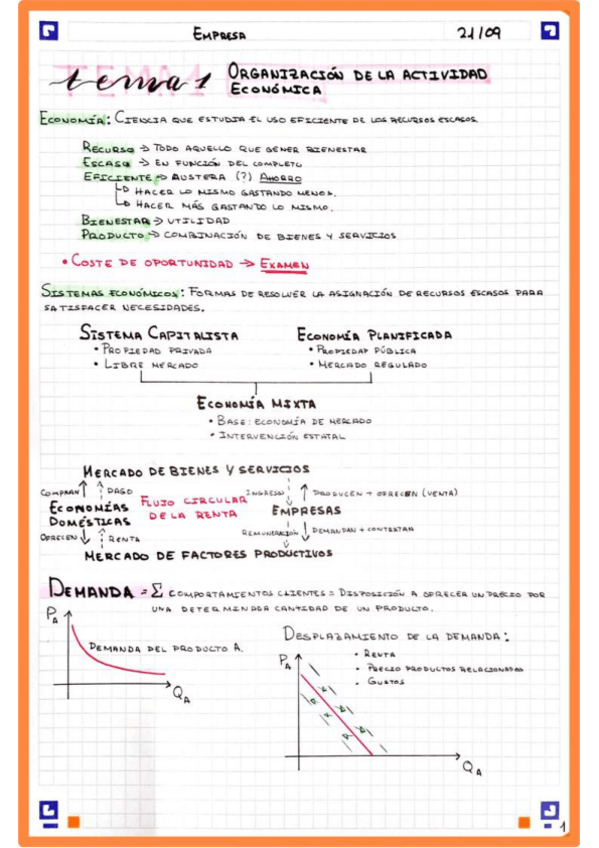 EMPRESA 21/09
tema 1 ORGANIZACIÓN DE LA ACTIVIDAD
ECONÓMICA
ECONOMÍA: CIENCIA QUE ESTUDIA EL USO EFICIENTE DE LOS RECURSOS ESCASOS.
RECURSO → TODO AQUELLO QUE GENER BIENESTAR
ESCASO → EN FUNCIÓN DEL COMPLETO
EFICIENTE → AUSTERA (?) AHORRO
HACER LO MISMO GASTANDO MENOS.
HACER MÁS GASTANDO LO MISMO.
BIENESTAR → UTILIDAD
PRODUCTO → COMBINACIÓN DE BIENES Y SERVICIOS
• COSTE DE OPORTUNIDAD → EXAMEN
SISTEMAS ECONÓMICOS: FORMAS DE RESOLVER LA ASIGNACIÓN DE RECURSOS ESCASOS PARA
SATISFACER NECESIDADES.
SISTEMA CAPITALISTA
• PROPIEDAD PRIVADA
• LIBRE MERCADO
ECONOMÍA PLANIFICADA
• PROPIEDAD PÚBLICA
• MERCADO REGULADO
ECONOMÍA MIXTA
• BASE: ECONOMÍA DE MERCADO
• INTERVENCIÓN ESTATAL
MERCADO DE BIENES Y SERVICIOS
COMPRAN ↑ PAGO
INGRESO ↑ PRODUCEN + OFRECEN (VENTA)
ECONOMÍAS
DOMÉSTICAS
FLUJO CIRCULAR
DE LA RENTA
EMPRESAS
OFRECEN ↓ RENTA
REMUNERACIÓN ↓ DEMANDAN + CONTRATAR
MERCADO DE FACTORES PRODUCTIVOS
DEMANDA = Σ COMPORTAMIENTOS CLIENTES = DISPOSICIÓN A OFRECER UN PRECIO POR
UNA DETERMINADA CANTIDAD DE UN PRODUCTO.
PA
DEMANDA DEL PRODUCTO A.
QA
DESPLAZAMIENTO DE LA DEMANDA:
• RENTA
• PRECIO PRODUCTOS RELACIONADOS
• GUSTOS
PA
QA
1